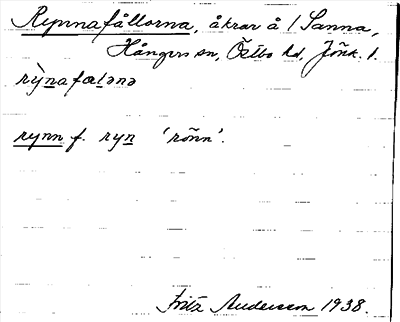 Rynnafållorna, åkrar å 1 Sanna,
Hångers sn, Östbo hd, Jönk. l.
rỳnafaləna
rynn f. ryn 'rönn'.
Fritz Andersson 1938.